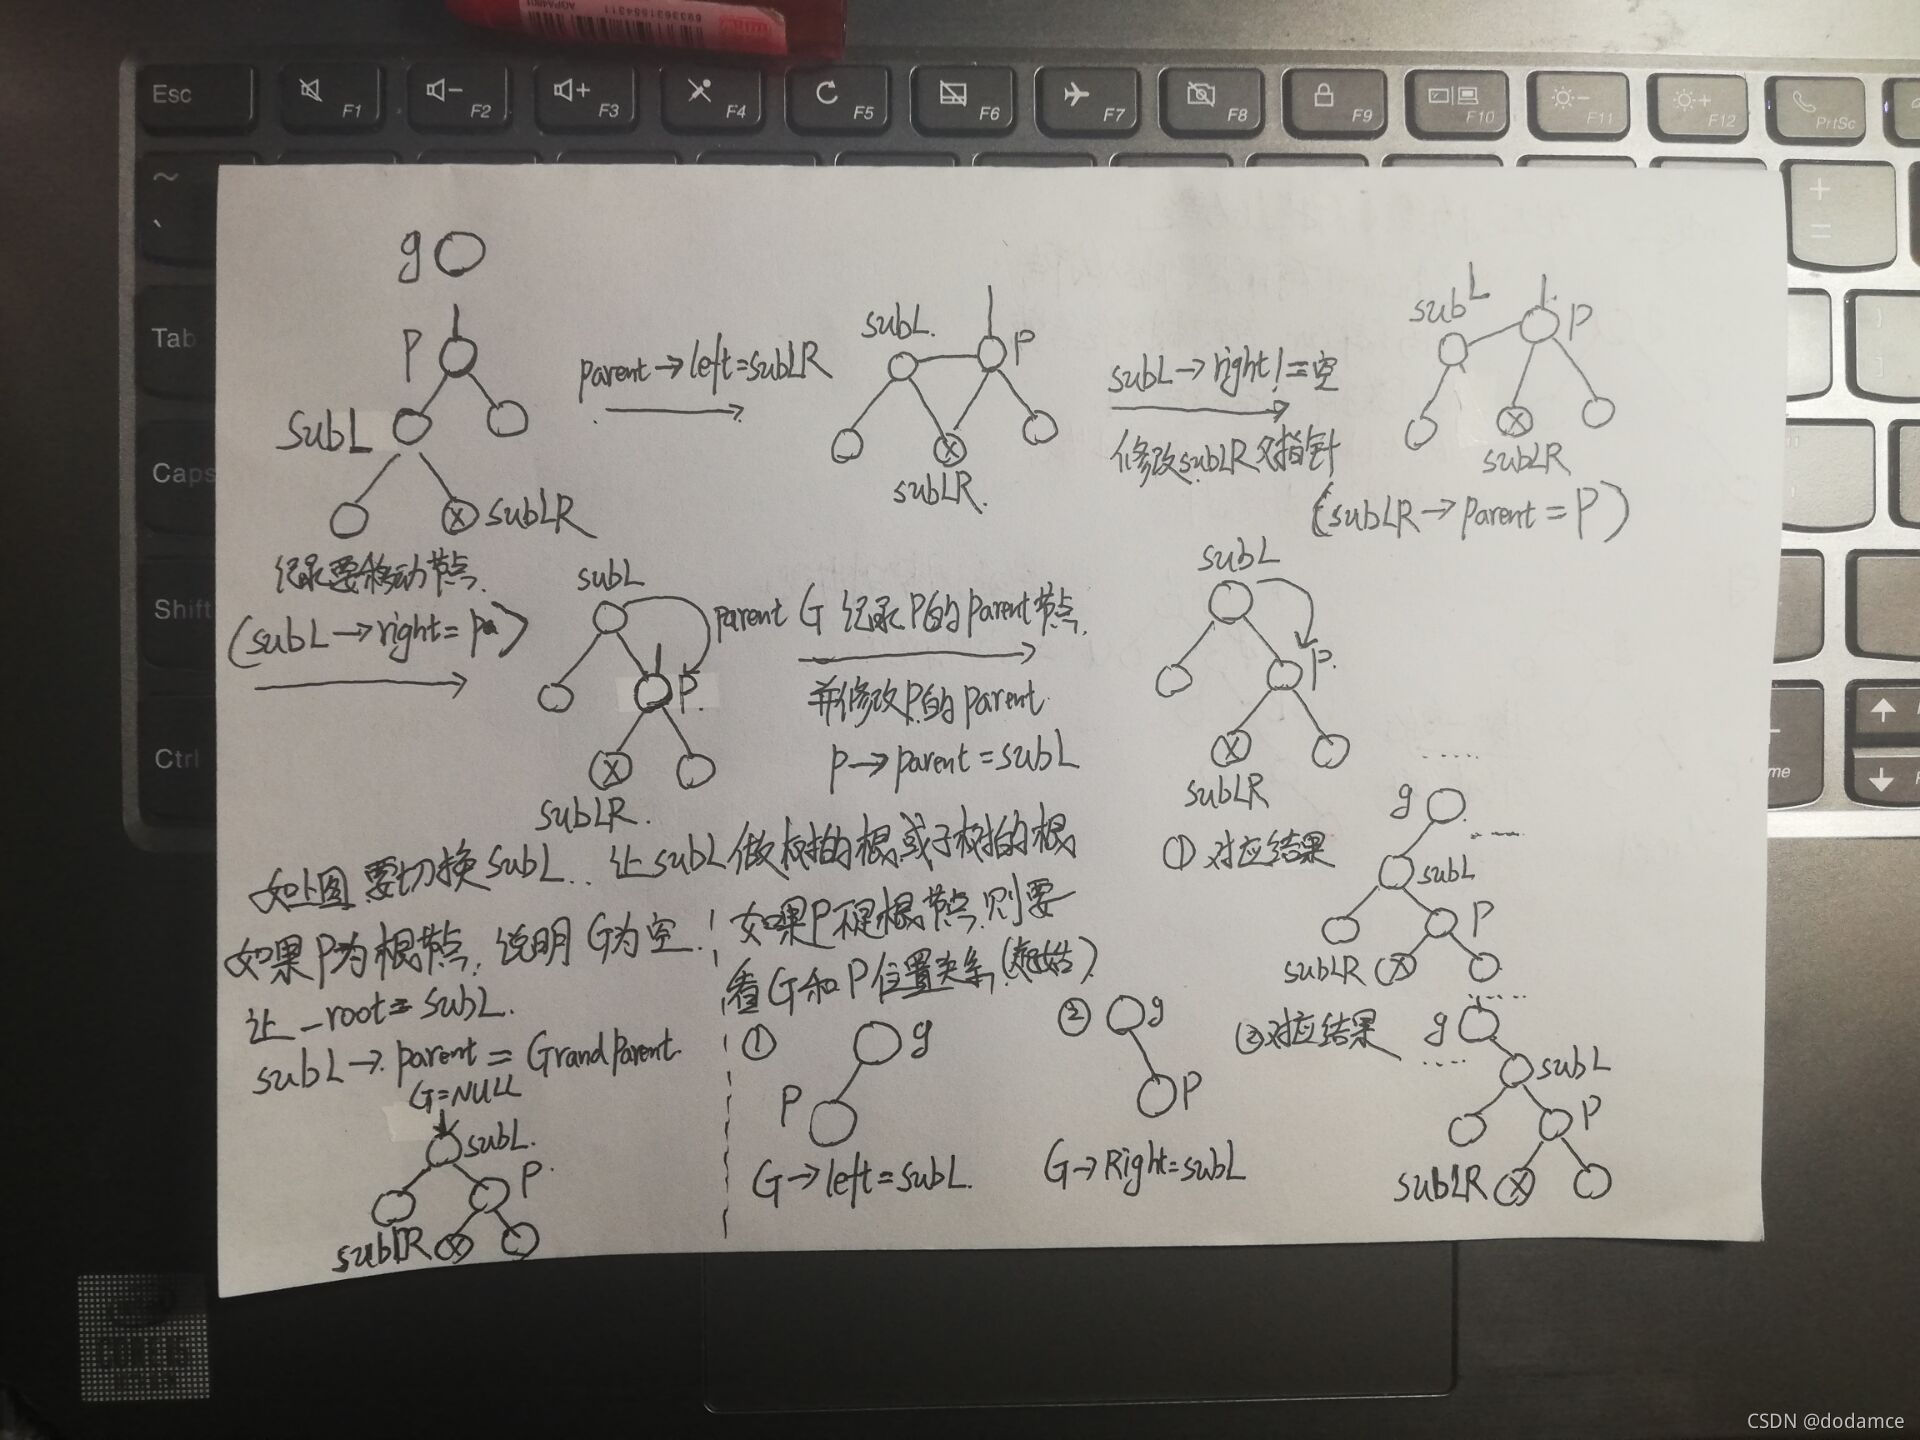 Esc
F1
F2
F3
F4
F5
F6
F7
F8
F9
F10
F11
F12
PrtSc
Tab
Caps
Shift
Ctrl
g
P
subL
subLR
parent→left=subLR
subL.
P
subLR.
subL→right!=空
修改subLR父指针
subL
P
subLR
(subLR→parent=P)
记录要移动节点.
(subL→right=pa)
subL
P.
subLR.
parent G 记录P的parent节点.
并修改P的parent
P→parent=subL
subL
P.
subLR
如上图要切换subL..让subL做树的根或子树的根
如果P为根节点.说明G为空.
让_root=subL.
subL→parent=GrandParent.
G=NULL
subL.
P.
subLR
如果P不是根节点.则要
看G和P位置关系
①
g
P
G→left=subL.
②
g
P
G→Right=subL
①对应结果
g
subL
P
subLR
②对应结果
g
subL
P
subLR
CSDN @dodamce